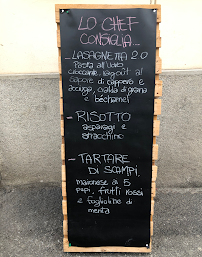 LO CHEF
CONSIGLIA...
- LASAGNETTA 2.0
Pasta all'uovo
croccante, ragout al
sapore di cappero e
acciuga, cialda di grana
e béchamel
- RISOTTO
asparagi e
stracchino
- TARTARE
DI SCAMPI,
maionese ai 5
pepi, frutti rossi
e foglioline di
menta